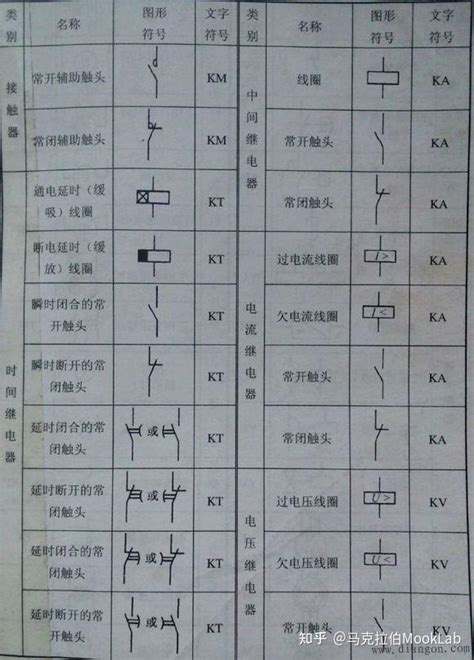 类别
名称
图形符号
文字符号
接触器
常开辅助触头
KM
常闭辅助触头
KM
时间继电器
通电延时（缓
吸）线圈
KT
断电延时（缓
放）线圈
KT
瞬时闭合的常
开触头
KT
瞬时断开的常
闭触头
KT
延时闭合的常
闭触头
或
KT
延时断开的常
闭触头
或
KT
延时闭合的常
闭触头
或
KT
延时断开的常
开触头
或
KT
类别
名称
图形符号
文字符号
中间继电器
线圈
KA
常开触头
KA
常闭触头
KA
电流继电器
过电流线圈
I >
KA
欠电流线圈
I <
KA
常开触头
KA
常闭触头
KA
电压继电器
过电压线圈
U >
KV
欠电压线圈
U <
KV
常开触头
KV
知乎 @马克拉伯MookLab
www.diangon.com